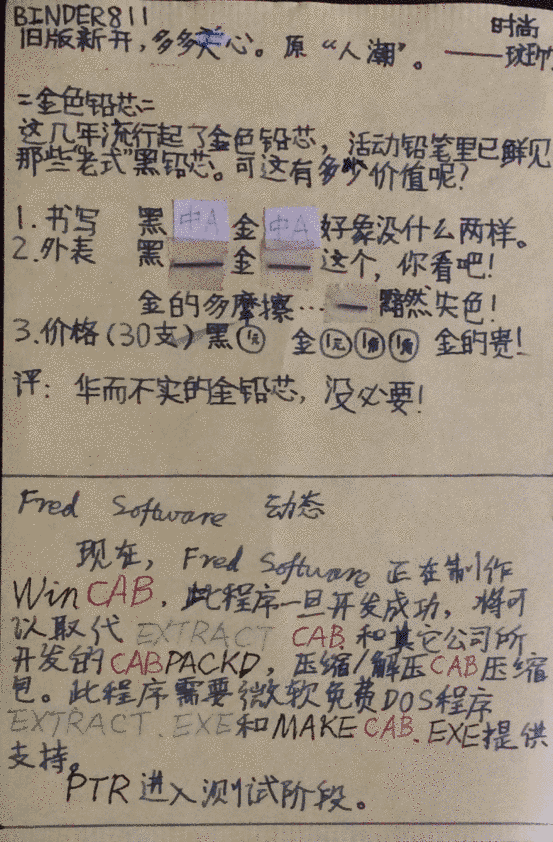 BINDER811
旧版新开，多多关心。原“人潮”。
时尚
——斑
=金色铅芯=
这几年流行起了金色铅芯，活动铅笔里已鲜见
那些“老式”黑铅芯。可这有多少价值呢？
1.书写 黑 中A 金 中A 好象没什么两样。
2.外表 黑 金 这个，你看吧！
金的多摩擦… 黯然失色！
3.价格（30支）黑 1元 金 1元 1角 1角 金的贵！
评：华而不实的金铅芯，没必要！
Fred Software 动态
现在，Fred Software 正在制作
WinCAB，此程序一旦开发成功，将可
以取代 EXTRACT CAB 和其它公司所
开发的CABPACKD，压缩/解压CAB压缩
包。此程序需要微软免费DOS程序
EXTRACT.EXE和MAKECAB.EXE提供
支持。
PTR进入测试阶段。